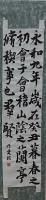 永和九年歲在癸丑暮春之
初會于會稽山陰之蘭亭
脩禊事也羣賢